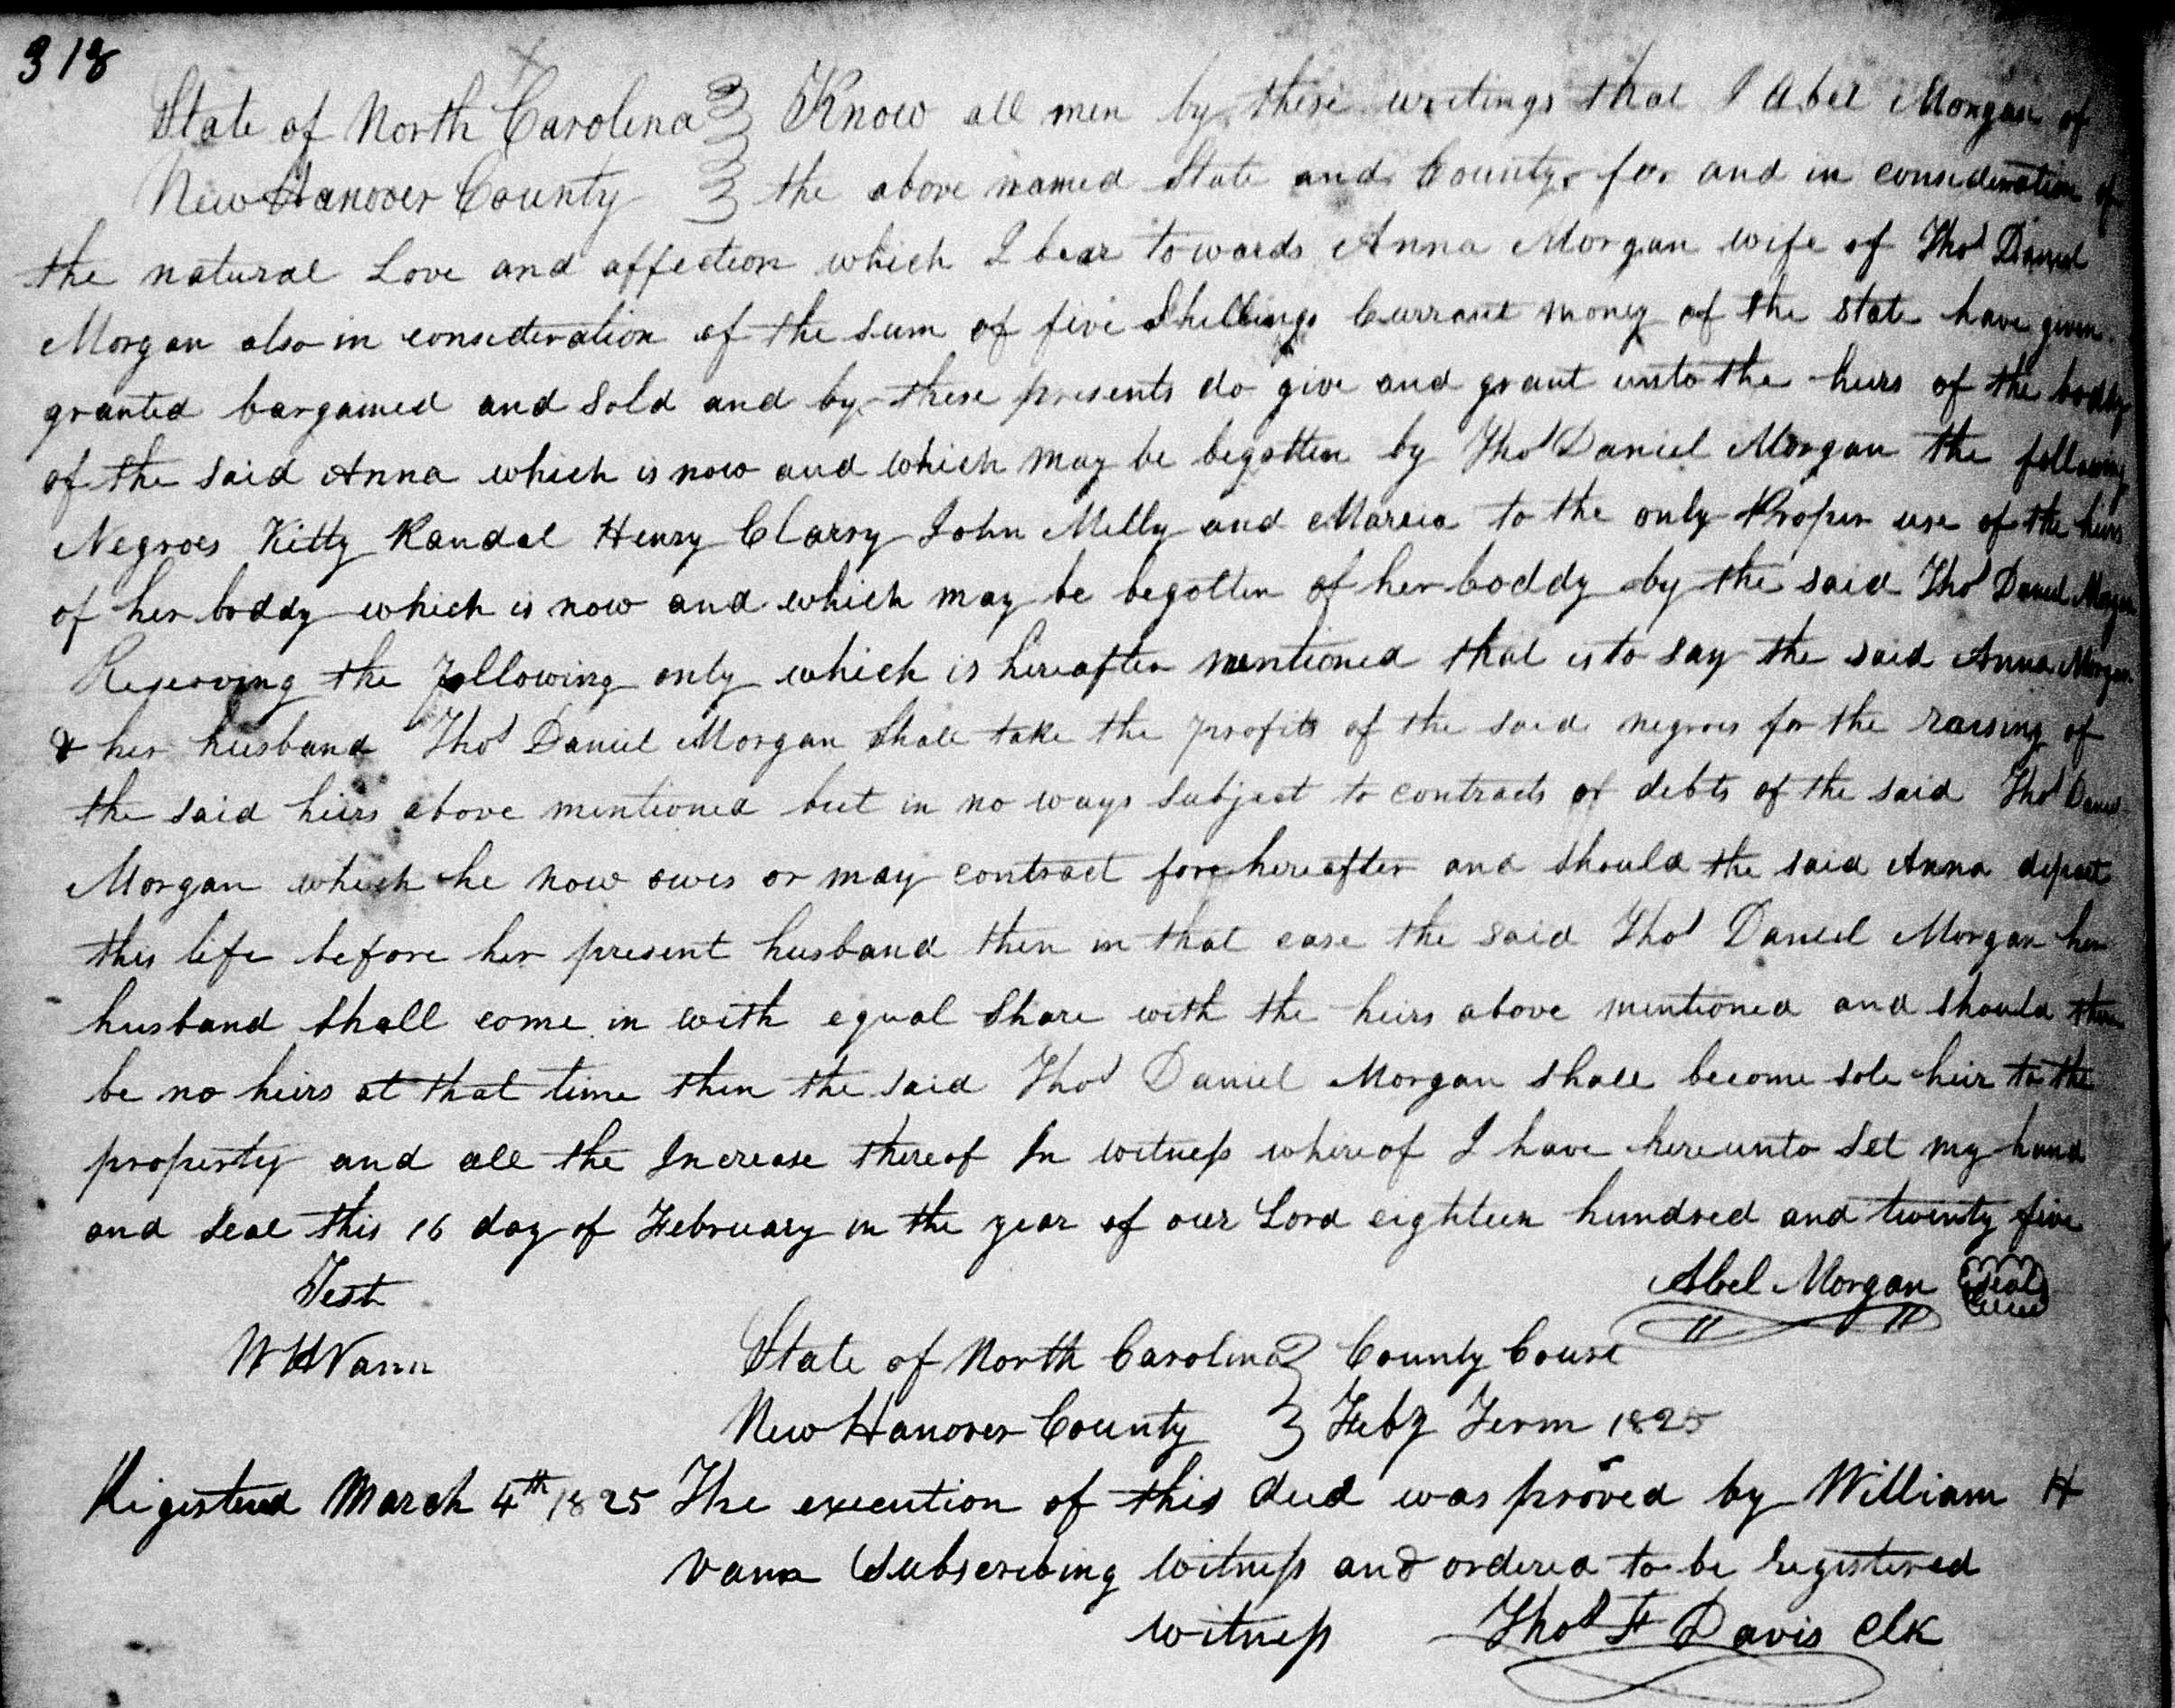 318
State of North Carolina } Know all men by these writings that I Abel Morgan of
New Hanover County } the above named State and County for and in consideration of
the natural Love and affection which I bear towards Anna Morgan wife of Thos Daniel
Morgan also in consideration of the sum of five Shillings Currant money of the state have given
granted bargained and Sold and by these presents do give and grant unto the heirs of the boddy
of the said Anna which is now and which may be begotten by Thos Daniel Morgan the following
Negroes Kitty Randal Henry Clarsy John Milly and Maria to the only Proper use of the heirs
of her boddy which is now and which may be begotten of her boddy by the said Thos Daniel Morgan
Reserving the following only which is hereafter mentioned that is to say the said Anna Morgan
& her husband Thos Daniel Morgan Shall take the profits of the said negroes for the raising of
the said heirs above mentioned but in no ways Subject to contracts of debts of the said Thos Daniel
Morgan which he now owes or may contract for hereafter and should the said Anna depart
this life before her present husband then in that case the said Thos Daniel Morgan her
husband Shall come in with equal Share with the heirs above mentioned and should there
be no heirs at that time then the said Thos Daniel Morgan shall become sole heir to the
property and all the Increase thereof In witness whereof I have hereunto Set my hand
and Seal this 16 day of February in the year of our Lord eighteen hundred and twenty five
Test Abel Morgan Seal
W H Vann State of North Carolina } County Court
New Hanover County } Feby Term 1825
Registered March 4th 1825 The execution of this deed was proved by William H
Vann Subscribing Witness and ordered to be registered
witness Thos F Davis Clk